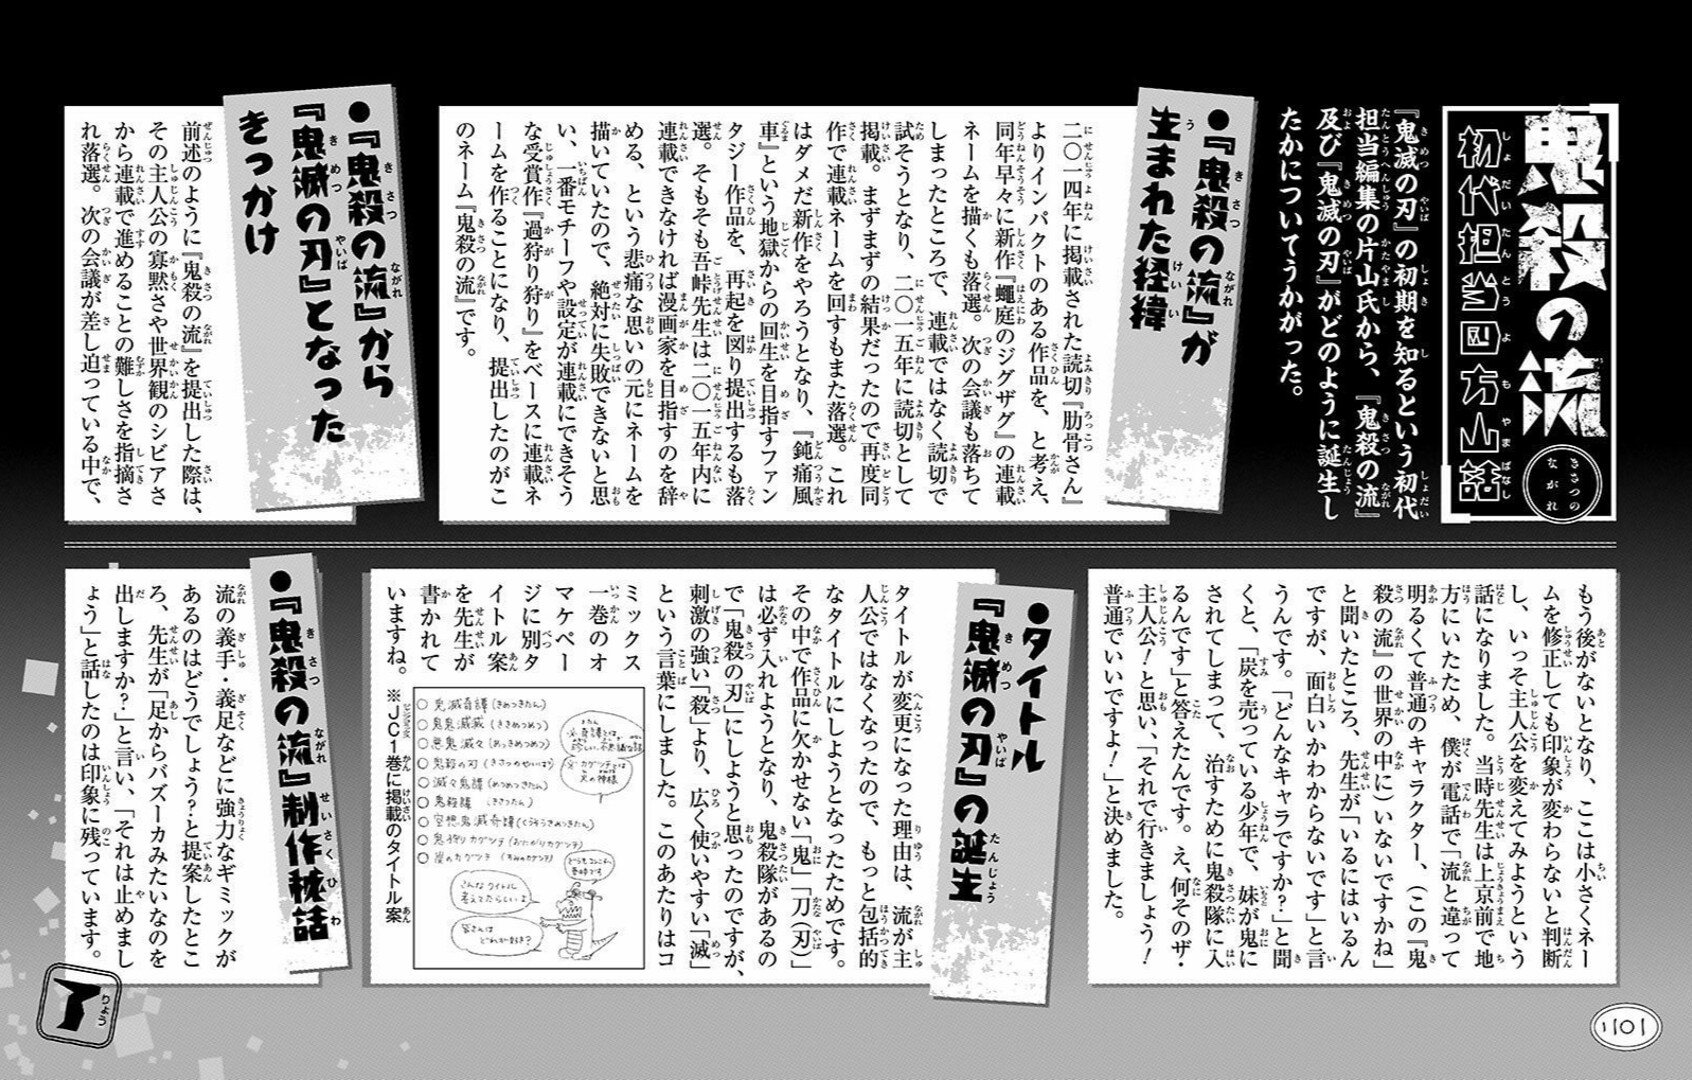 鬼殺の流
きさつの
ながれ
初代担当四方山話
『鬼滅の刃』の初期を知るという初代
担当編集の片山氏から、『鬼殺の流』
及び『鬼滅の刃』がどのように誕生し
たかについてうかがった。
●『鬼殺の流』が
生まれた経緯
二〇一四年に掲載された読切『肋骨さん』
よりインパクトのある作品を、と考え、
同年早々に新作『蠅庭のジグザグ』の連載
ネームを描くも落選。次の会議も落ちて
しまったところで、連載ではなく読切で
試そうとなり、二〇一五年に読切として
掲載。まずまずの結果だったので再度同
作で連載ネームを回すもまた落選。これ
はダメだ新作をやろうとなり、『鈍痛風
車』という地獄からの回生を目指すファン
タジー作品を、再起を図り提出するも落
選。そもそも吾峠先生は二〇一五年内に
連載できなければ漫画家を目指すのを辞
める、という悲痛な思いの元にネームを
描いていたので、絶対に失敗できないと思
い、一番モチーフや設定が連載にできそう
な受賞作『過狩り狩り』をベースに連載ネ
ームを作ることになり、提出したのがこ
のネーム『鬼殺の流』です。
●『鬼殺の流』から
『鬼滅の刃』となった
きっかけ
前述のように『鬼殺の流』を提出した際は、
その主人公の寡黙さや世界観のシビアさ
から連載で進めることの難しさを指摘さ
れ落選。次の会議が差し迫っている中で、
もう後がないとなり、ここは小さくネー
ムを修正しても印象が変わらないと判断
し、いっそ主人公を変えてみようという
話になりました。当時先生は上京前で地
方にいたため、僕が電話で「流と違って
明るくて普通のキャラクター、(この『鬼
殺の流』の世界の中に)いないですかね」
と聞いたところ、先生が「いるにはいるん
ですが、面白いかわからないです」と言
うんです。「どんなキャラですか?」と聞
くと、「炭を売っている少年で、妹が鬼に
されてしまって、治すために鬼殺隊に入
るんです」と答えたんです。え、何そのザ・
主人公!と思い、「それで行きましょう!
普通でいいですよ!」と決めました。
●タイトル
『鬼滅の刃』の誕生
タイトルが変更になった理由は、流が主
人公ではなくなったので、もっと包括的
なタイトルにしようとなったためです。
その中で作品に欠かせない「鬼」「刀(刃)」
は必ず入れようとなり、鬼殺隊があるの
で「鬼殺の刃」にしようと思ったのですが、
刺激の強い「殺」より、広く使いやすい「滅」
という言葉にしました。このあたりはコ
ミックス
一巻のオ
マケペー
ジに別タ
イトル案
を先生が
書かれて
いますね。
○鬼滅奇譚(きめつきたん)
○鬼鬼滅滅(ききめつめつ)
○悪鬼滅々(あっきめつめつ)
○鬼殺の刃(きさつのやいば)
○滅々鬼譚(めつめつきたん)
○鬼殺譚(きさつたん)
○空想鬼滅奇譚(くうそうきめつきたん)
○鬼狩りカグツチ(おにがりカグツチ)
○炭のカグツチ(すみのカグツチ)
※奇譚とは、
珍しい、不思議な話
※カグツチとは
火の神様
どうもコンニチハ
吾峠です
こんなタイトル
考えてたらしいよ
皆さんは
どれが好き?
※JC1巻に掲載のタイトル案
●『鬼殺の流』制作秘話
流の義手・義足などに強力なギミックが
あるのはどうでしょう?と提案したとこ
ろ、先生が「足からバズーカみたいなのを
出しますか?」と言い、「それは止めまし
ょう」と話したのは印象に残っています。
了
りょう
101